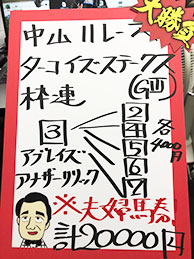 大勝負
中山11レース
ターコイズステークス
(GⅢ)
枠連
3
2
4
5
6
7
各4000円
アプレイズ
アナザーリリック
※夫婦馬券!
計20000円